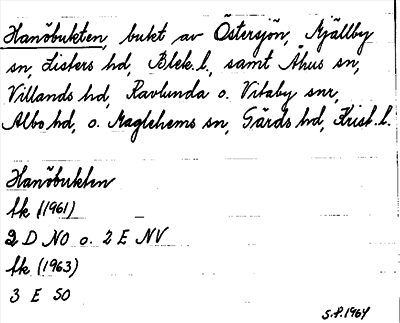 Hanöbukten, bukt av Östersjön, Mjällby
sn, Listers hd, Blek. l., samt Åhus sn,
Villands hd, Ravlunda o. Vitaby snr,
Albo hd, o. Maglehems sn, Gärds hd, Krist. l.
Hanöbukten
fk (1961)
2 D NO o. 2 E NV
fk (1963)
3 E SO
S.P. 1964